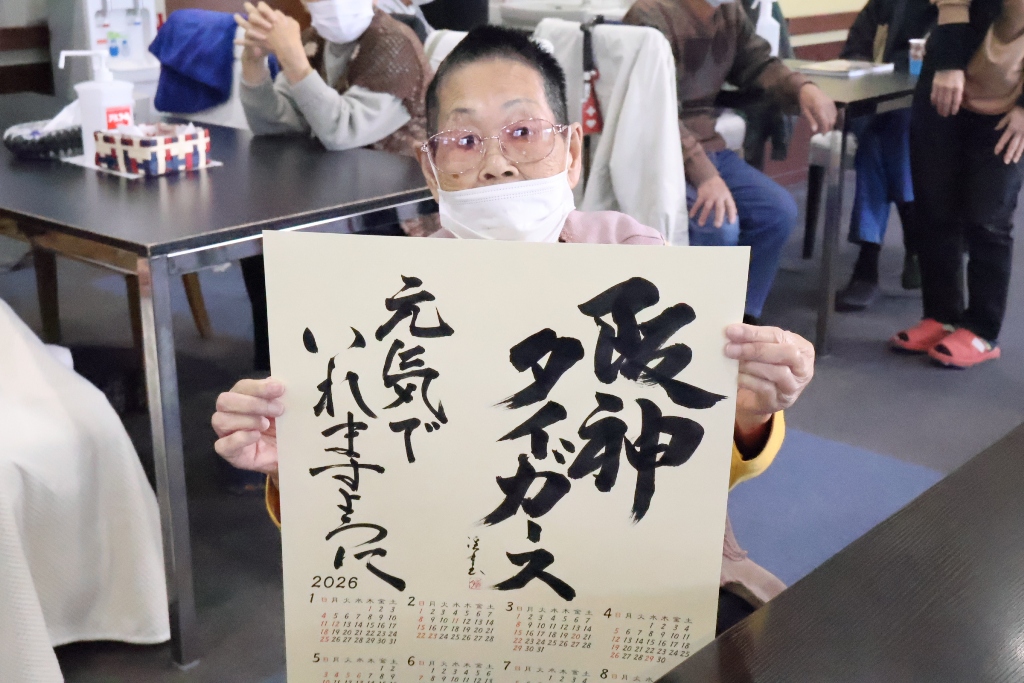 阪神
タイガース
元気で
いれますように
2026
1
日 月 火 水 木 金 土
1 2 3
4 5 6 7 8 9 10
11 12 13 14 15 16 17
18 19 20 21 22 23 24
25 26 27 28 29 30 31
2
日 月 火 水 木 金 土
1 2 3 4 5 6 7
8 9 10 11 12 13 14
15 16 17 18 19 20 21
22 23 24 25 26 27 28
3
日 月 火 水 木 金 土
1 2 3 4 5 6 7
8 9 10 11 12 13 14
15 16 17 18 19 20 21
22 23 24 25 26 27 28
29 30 31
4
日 月 火 水 木 金 土
1 2 3 4
5 6 7 8 9 10 11
12 13 14 15 16 17 18
19 20 21 22 23 24 25
26 27 28 29 30
5
日 月 火 水 木 金 土
1 2
3 4 5 6 7 8 9
6
日 月 火 水 木 金 土
1 2 3 4 5 6
7
日 月 火 水 木 金 土
1 2 3 4
8
日 月 火 水 木 金 土